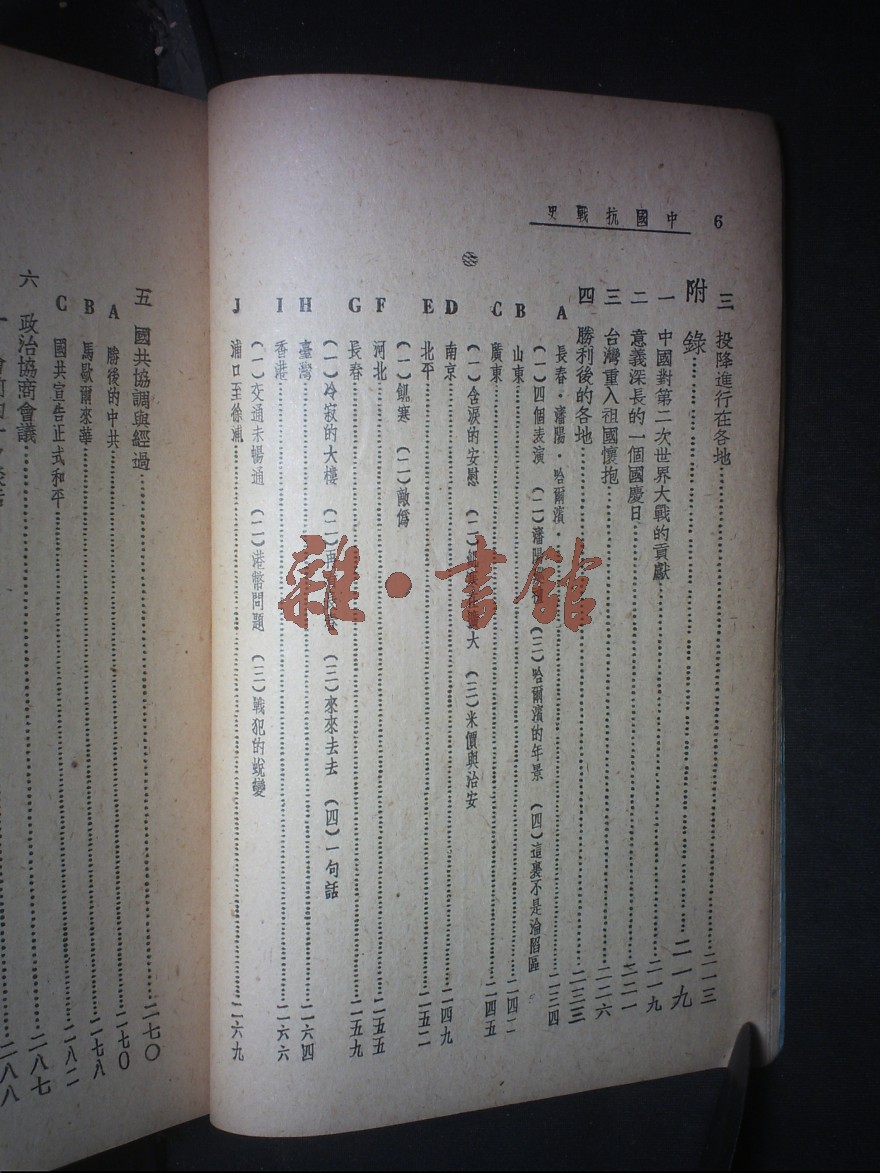 6 中國抗戰史
三 投降進行在各地……二一三
附錄……二一九
一 中國對第二次世界大戰的貢獻……二一九
二 意義深長的一個國慶日……二二一
三 台灣重入祖國懷抱……二二六
四 勝利後的各地……二三三
A 長春·瀋陽·哈爾濱……二三四
(一)四個表演 (二)瀋陽 (三)哈爾濱的年景 (四)這裏不是淪陷區
B 山東……二四二
C 廣東……二四五
(一)含淚的安慰 (二) 大 (三)米價與治安
D 南京……二四九
E 北平……二五二
(一)飢寒 (二)敵僞
F 河北……二五五
G 長春……二五九
(一)冷寂的大樓 (二)再 (三)來來去去 (四)一句話
H 臺灣……二六四
I 香港……二六六
(一)交通未暢通 (二)港幣問題 (三)戰犯的蛻變
J 浦口至徐浦……二六九
五 國共協調與經過……二七〇
A 勝後的中共……二七〇
B 馬歇爾來華……二七八
C 國共宣告正式和平……二八二
六 政治協商會議……二八七
二八八
雜·書館